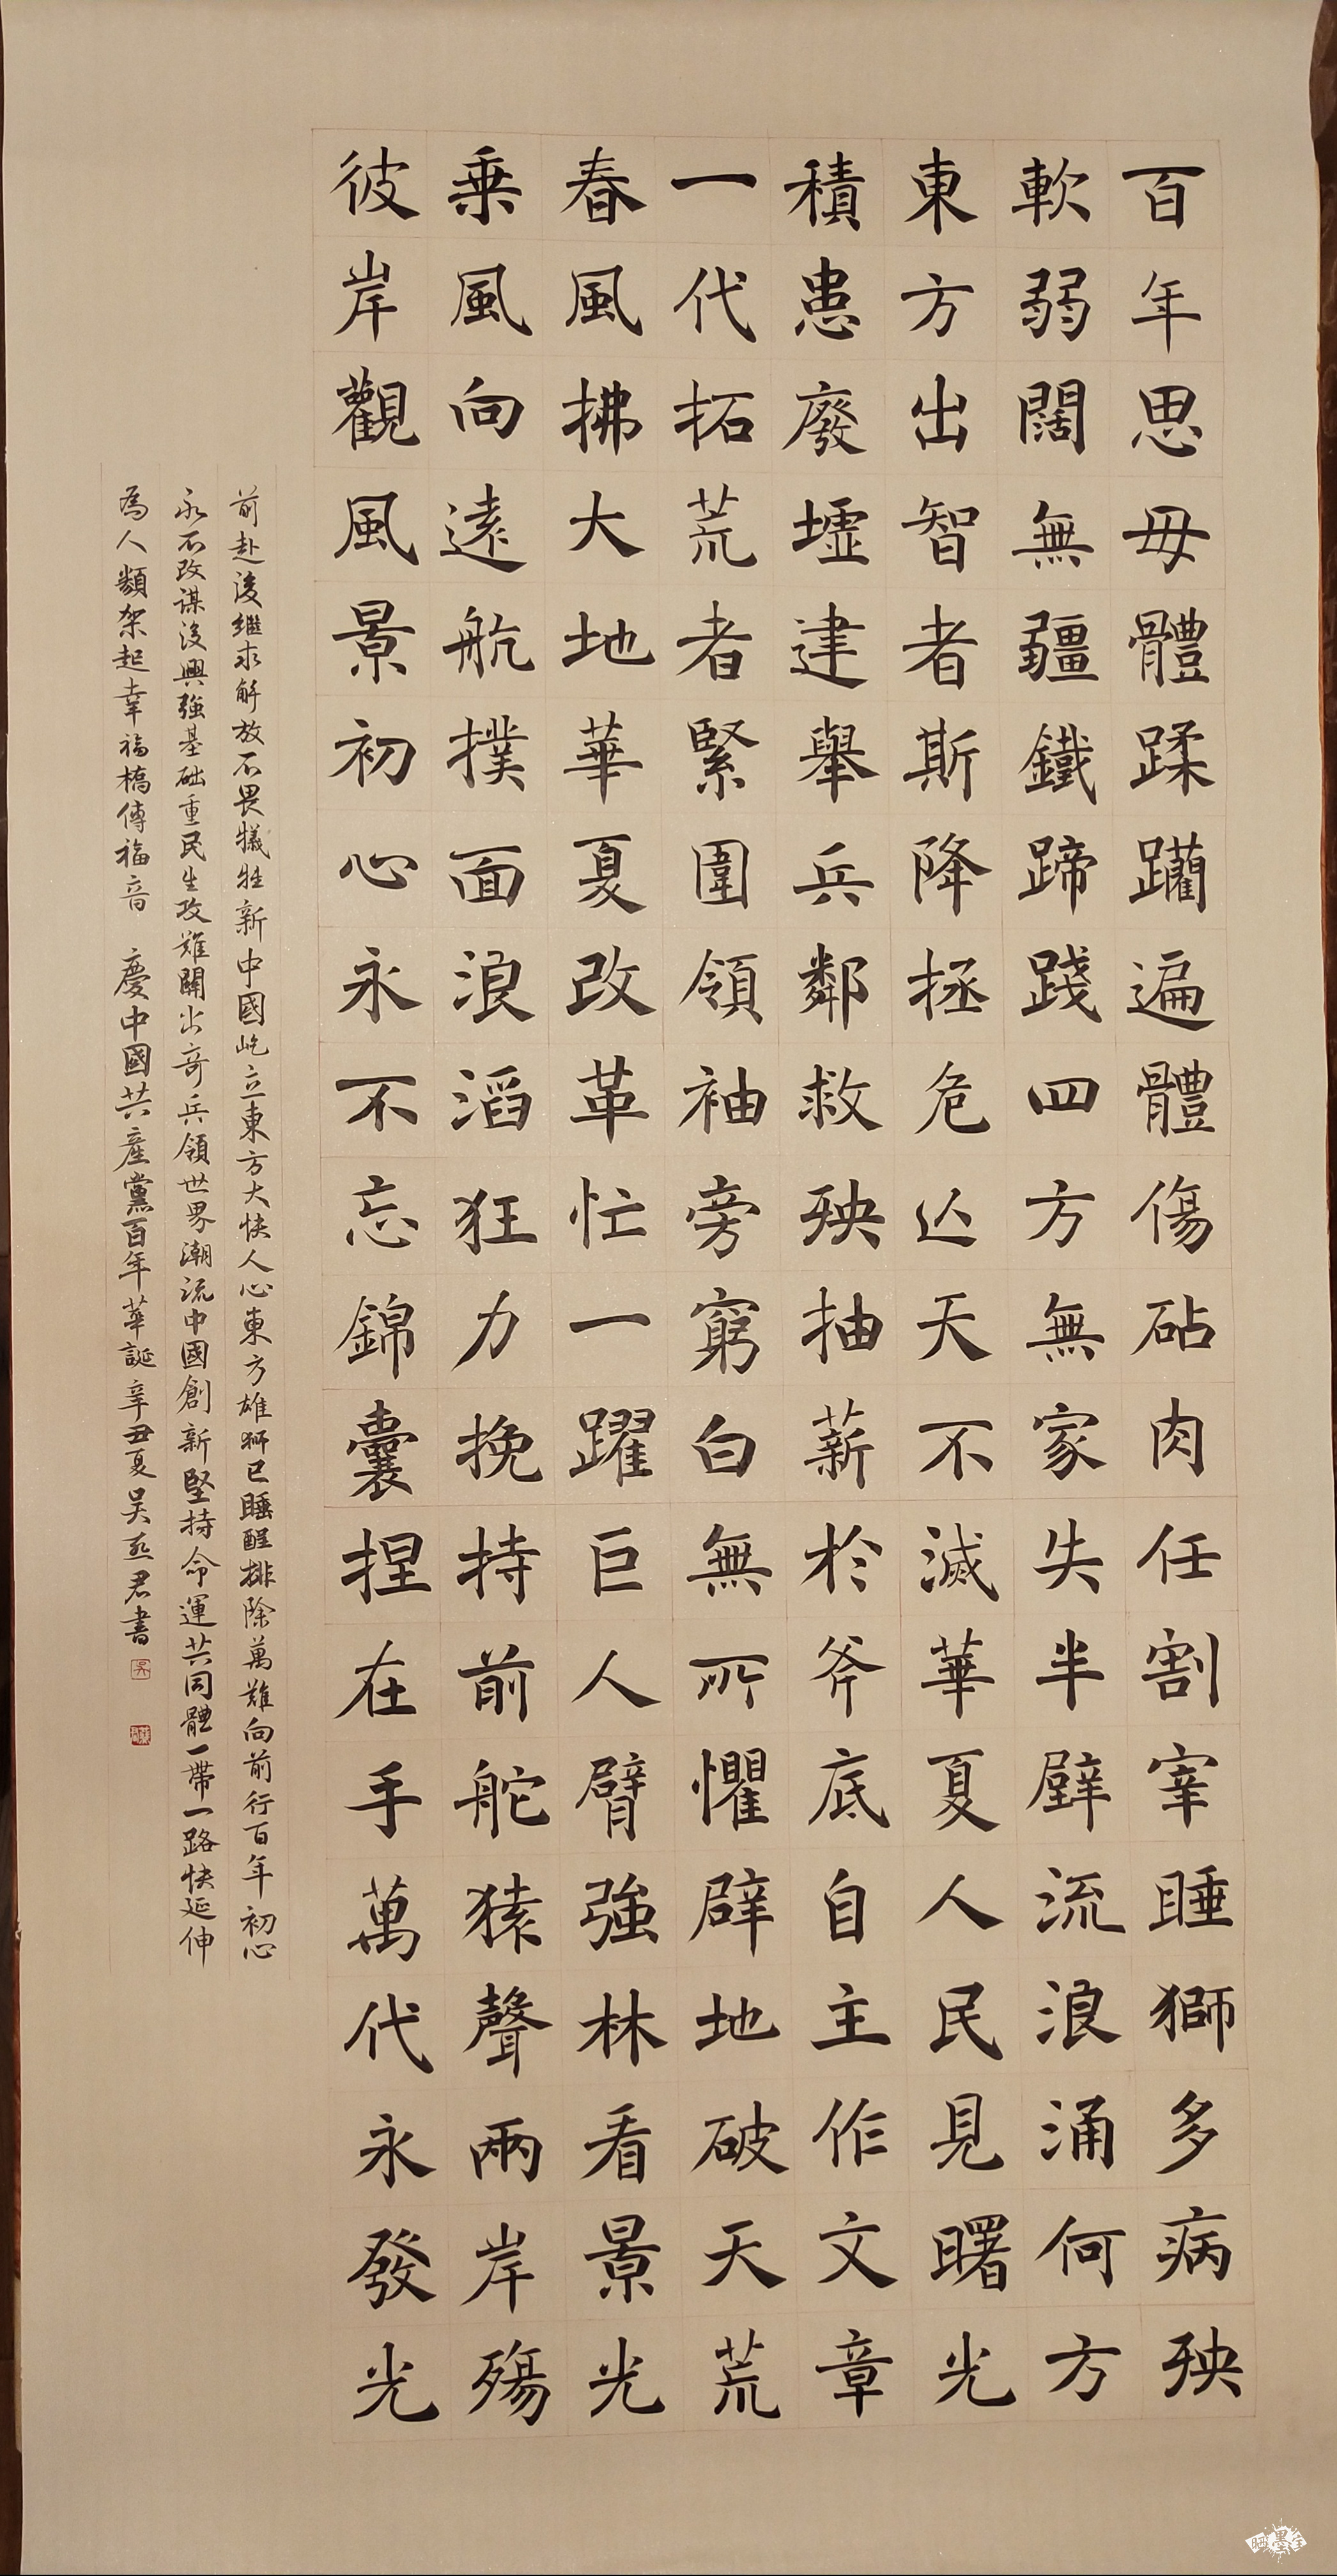 百年思毋體蹂躪遍體傷砧肉任割宰睡獅多病殃
軟弱闊無疆鐵蹄踐四方無家失半壁流浪涌何方
東方出智者斯降拯危亾天不滅華夏人民見曙光
積患廢墟建舉兵鄰救殃抽薪於斧底自主作文章
一代拓荒者緊圍領袖旁窮白無所懼辟地破天荒
春風拂大地華夏改革忙一躍巨人臂強林看景光
乗風向遠航撲面浪滔狂力挽持前舵猿聲兩岸殤
彼岸觀風景初心永不忘錦囊捏在手萬代永發光
前赴後繼求解放不畏犧牲新中國屹立東方大快人心東方雄獅已睡醒排除萬難向前行百年初心
永不改謀復興強基础重民生攻難關出奇兵領世界潮流中國創新堅持命運共同體一帶一路快延伸
為人類架起幸福橋傳福音 慶中國共產黨百年華誕辛丑夏吳君書
吳
晒墨宝